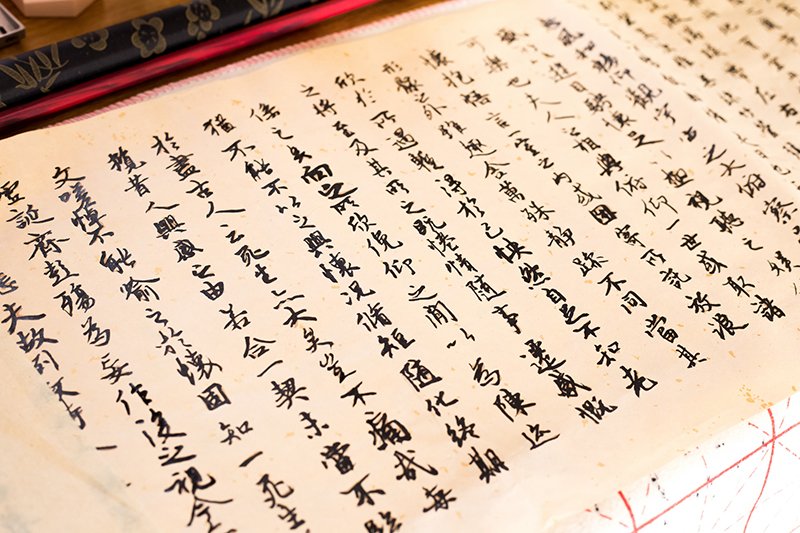 風和暢仰觀宇宙之大俯察
以遊目騁懷足以極視聽之娛
可樂也夫人之相與俯仰一世或取諸
懷抱悟言一室之內或因寄所託放浪
形骸之外雖趣舍萬殊靜躁不同當其
欣於所遇輙得於己快然自足不知老
之將至及其所之既惓情隨事遷感慨
係之矣向之所欣俛仰之閒以為陳迹
猶不能不以之興懷況脩短隨化終期
於盡古人云死生亦大矣豈不痛哉每
攬昔人興感之由若合一契未嘗不臨
文嗟悼不能喻之於懷固知一死生
虛誕齊彭殤為妄作後之視今
悲夫故列敘時